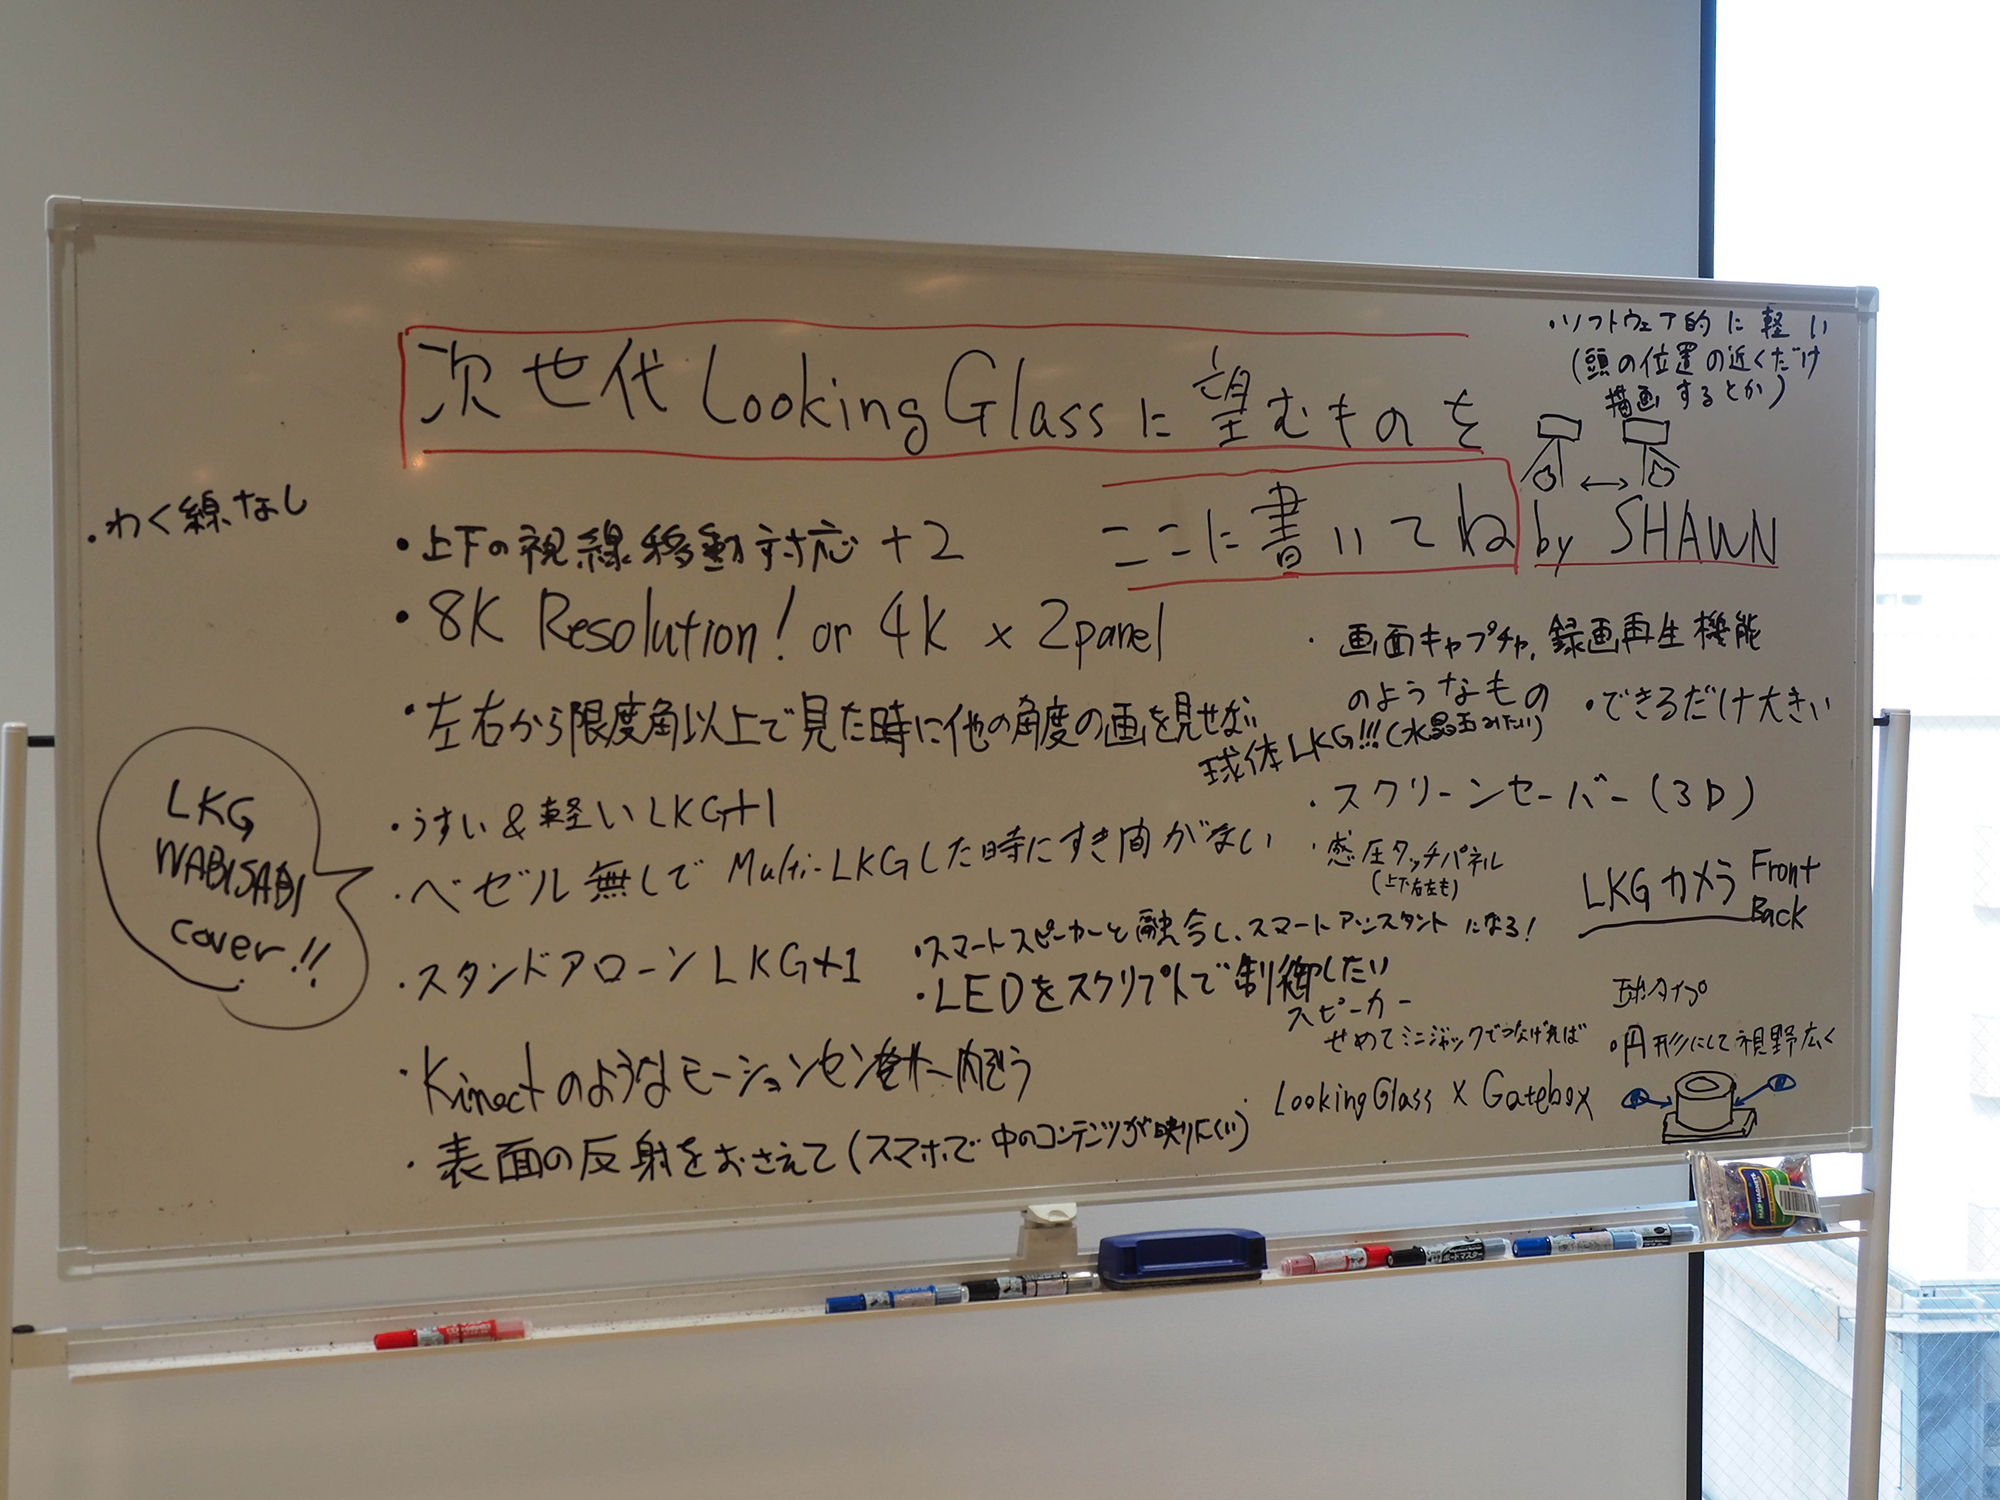 次世代 Looking Glass に望むものを
ここに書いてね by SHAWN
・ソフトウェア的に軽い
(頭の位置の近くだけ
描画するとか)
・わく線なし
・上下の視線移動対応 +2
・8K Resolution! or 4K x 2panel
・左右から限度角以上で見た時に他の角度の画を見せない
・うすい & 軽い LKG+1
・ベゼル無しで Multi-LKGした時にすき間がない
・スタンドアローンLKG+1
・Kinectのようなモーションセン
・表面の反射をおさえて(スマホで中のコンテンツが映りにくい)
LKG
WABISABI
cover!!
・画面キャプチャ, 録画再生機能
のようなもの
・できるだけ大きい
球体LKG!!!(水晶玉みたい)
・スクリーンセーバー(3D)
・感圧タッチパネル
(上下右左も)
LKGカメラ Front
Back
・スマートスピーカーと融合し、スマートアシスタントになる!
・LEDをスクリプトで制御したい
スピーカー
せめてミニジャックでつなげれば
球タイプ
・円形にして視野広く
LookingGlass x Gatebox